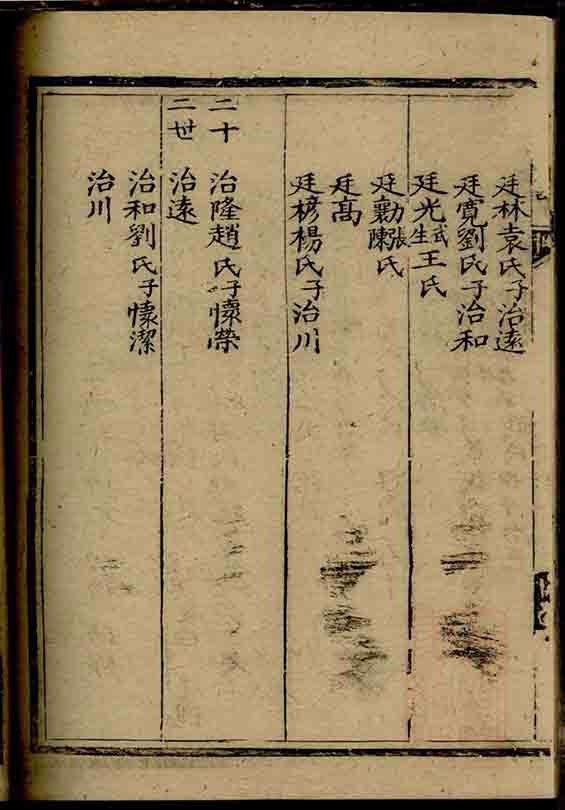 廷林袁氏子治遠
廷寬劉氏子治和
廷光武生王氏
廷勷張陳氏
廷高
廷楌楊氏子治川
二十二世
治隆趙氏子懷榮
治遠
治和劉氏子懷潔
治川